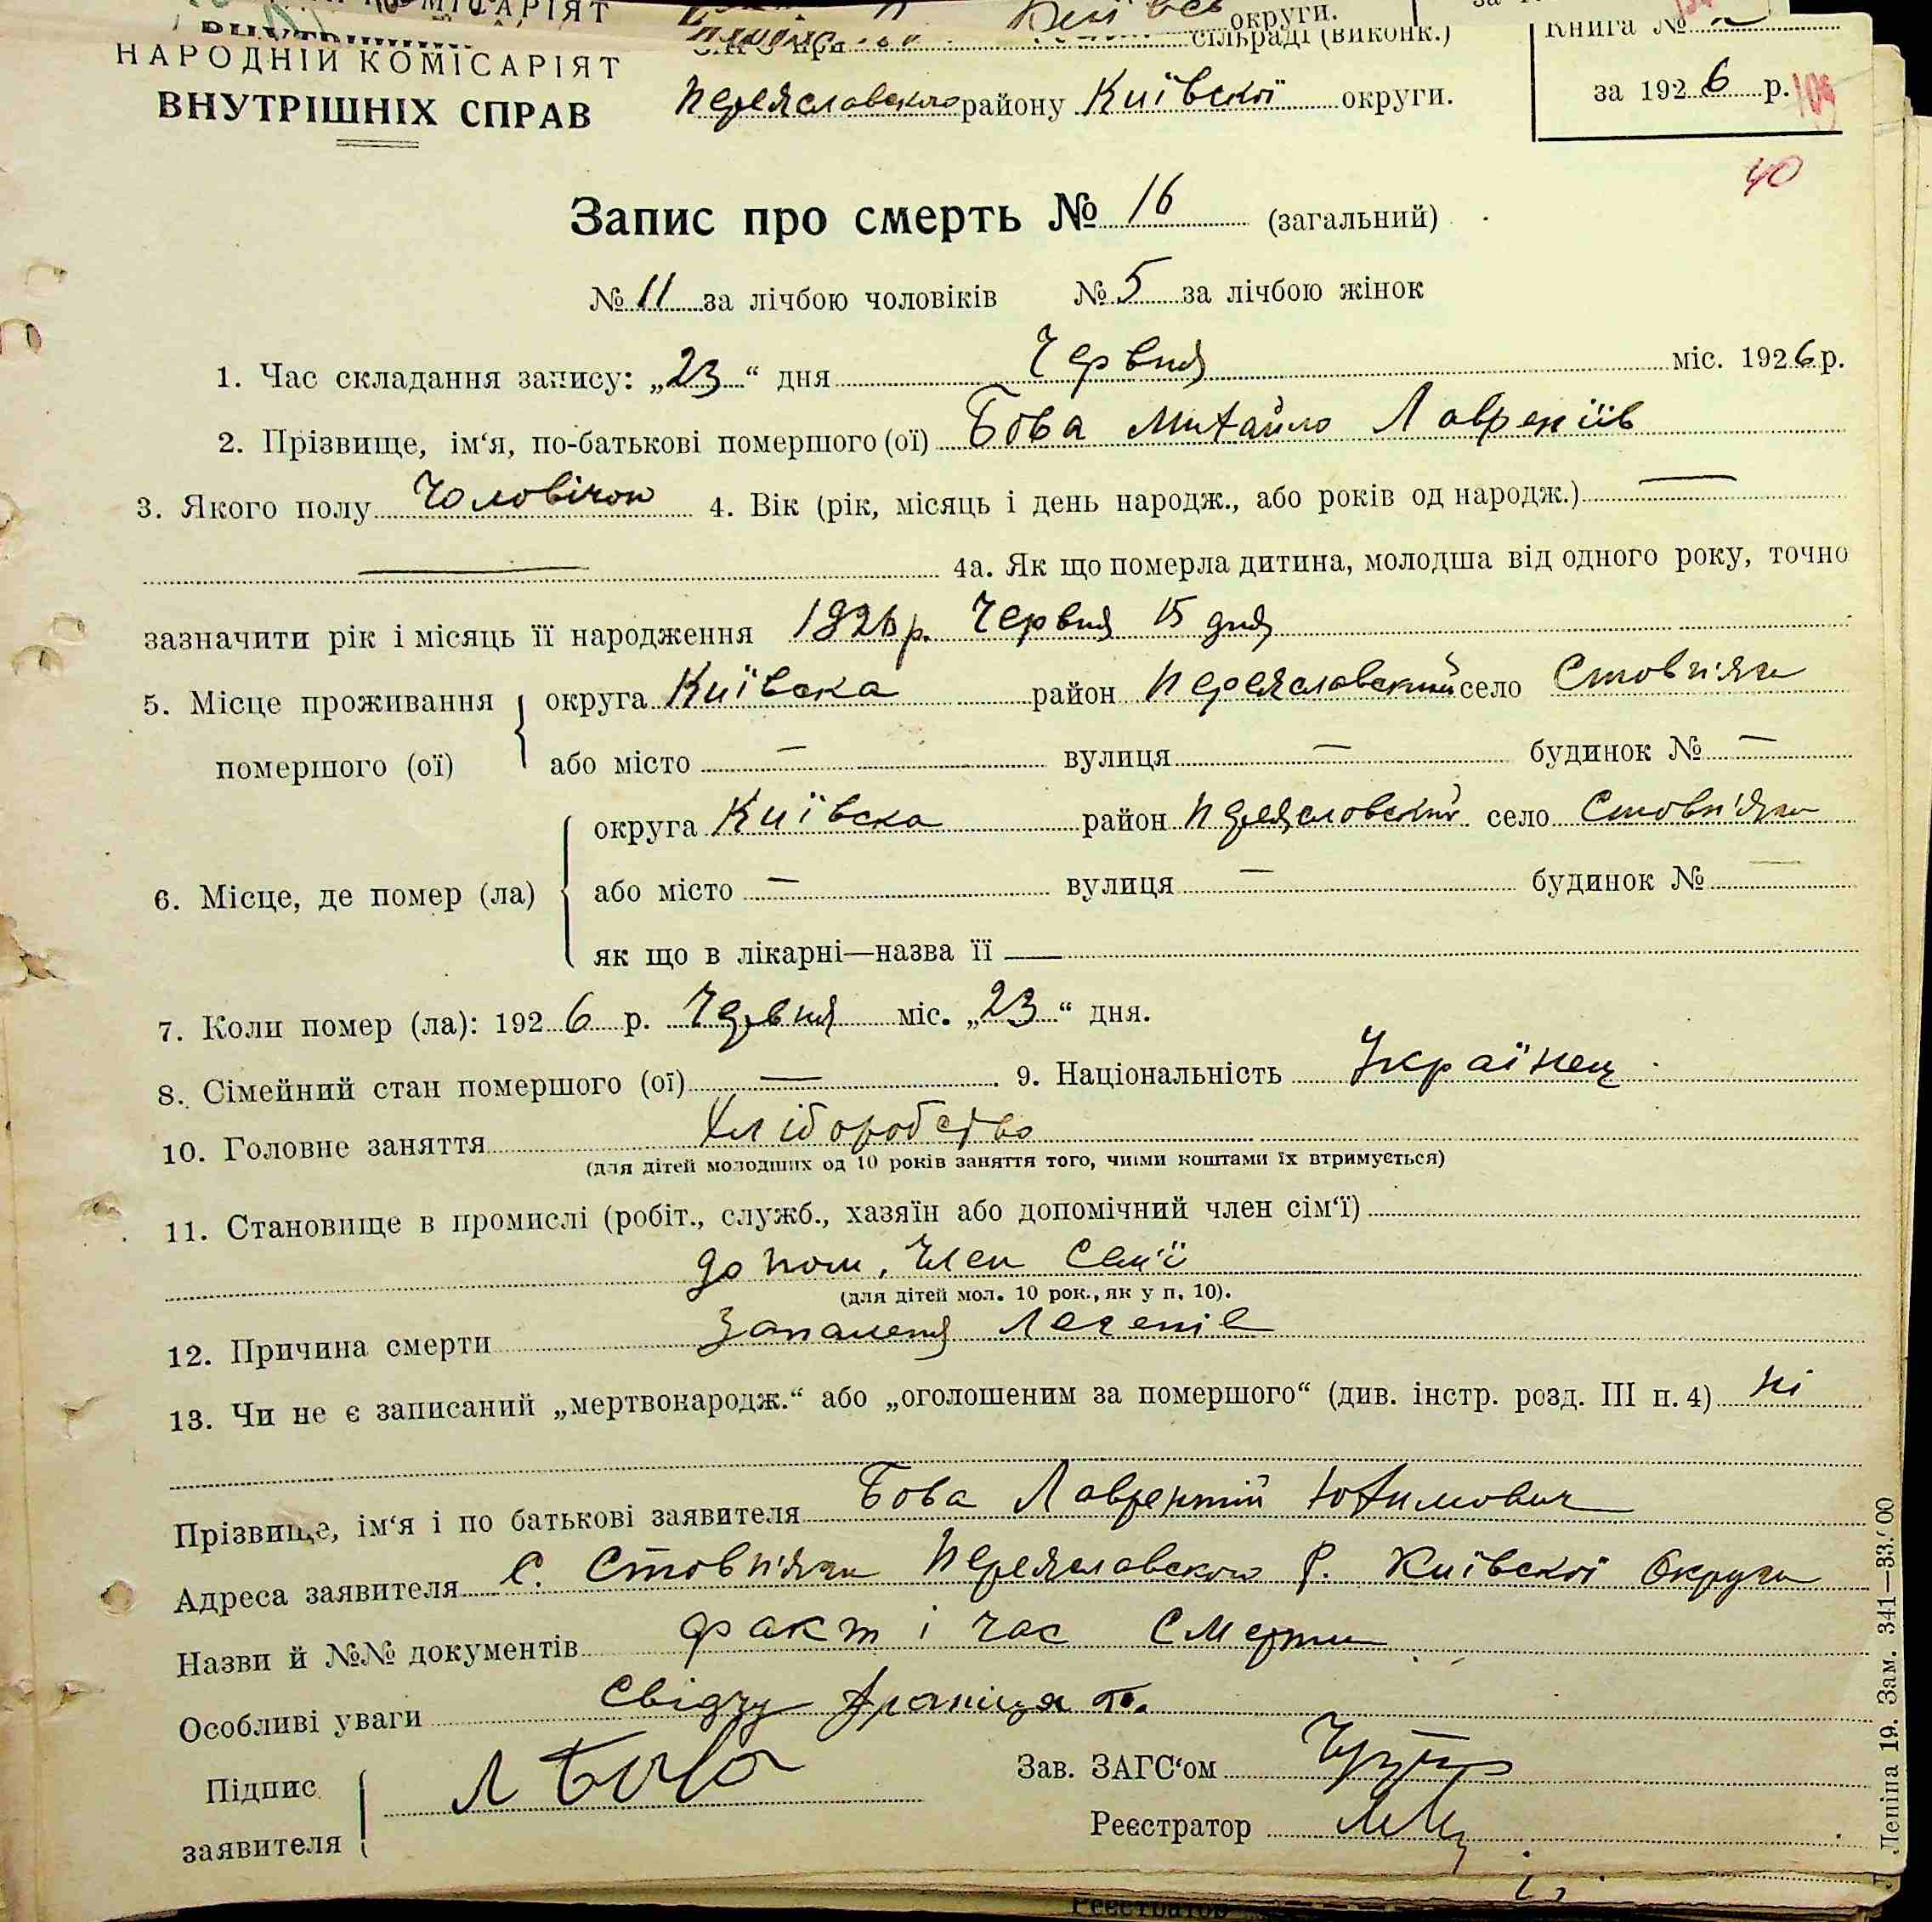 НАРОДНІЙ КОМІСАРІЯТ
ВНУТРІШНІХ СПРАВ
округи.
сільраді (виконк.)
Переяславського району Київської округи.
Книга №
за 1926 р.
109
40
Запис про смерть № 16 (загальний)
№ 11 за лічбою чоловіків № 5 за лічбою жінок
1. Час складання запису: „23“ дня Червня міс. 1926 р.
2. Прізвище, ім‘я, по-батькові помершого (ої) Бова Михайло Лавреніїв
3. Якого полу Чоловічого 4. Вік (рік, місяць і день народж., або років од народж.) —
— 4а. Як що померла дитина, молодша від одного року, точно
зазначити рік і місяць її народження 1926 р. Червня 15 дня
5. Місце проживання помершого (ої) округа Київська район Переяславський село Стовп'яги
або місто — вулиця — будинок № —
6. Місце, де помер (ла) округа Київська район Переяславський село Стовп'яги
або місто — вулиця — будинок № —
як що в лікарні—назва її —
7. Коли помер (ла): 1926 р. Червня міс. „23“ дня.
8. Сімейний стан помершого (ої) — 9. Національність Українец
10. Головне заняття Хліборобство
(для дітей молодших од 10 років заняття того, чиіми коштами їх втримується)
11. Становище в промислі (робіт., служб., хазяїн або допомічний член сім‘ї)
допом. Член Сем'ї
(для дітей мол. 10 рок., як у п. 10).
12. Причина смерти Запаленя Легенів
13. Чи не є записаний „мертвонародж.“ або „оголошеним за помершого“ (див. інстр. розд. III п. 4) ні
Прізвище, ім‘я і по батькові заявителя Бова Лаврентій Юхимович
Адреса заявителя С. Стовп'яги Переяславського Р. Київської Округи
Назви й №№ документів факт і час Смерти
Особливі уваги Свідчу
Підпис заявителя Л Бова
Зав. ЗАГС‘ом
Реєстратор
Леніна 19. Зам. 341—33.'00
Реєстратор